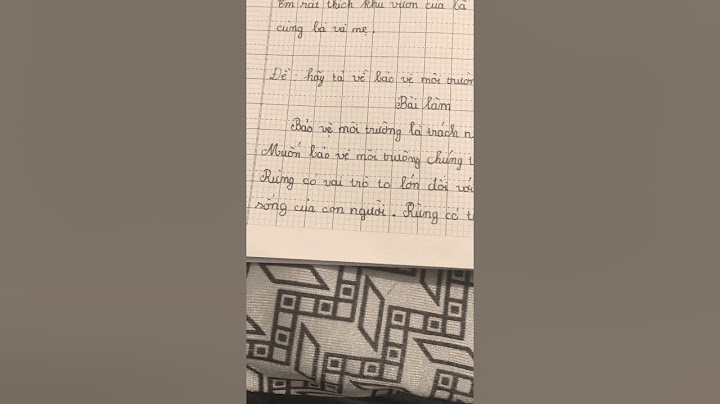 Em rất thích khu vườn của bà
cùng bà và mẹ.
Đề: hãy tả về bảo vệ môi trườn
Bài làm
Bảo vệ môi trường là trách n
Muốn bảo vệ môi trường chúng t
Rừng có vai trò to lớn đối với
sống của con người. Rừng có t